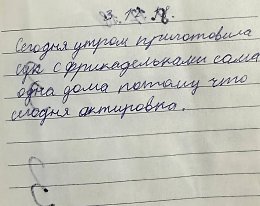 Сегодня утром приготовила
суп с фрикадельками сама
одна дома потому что
сегодня актировка.